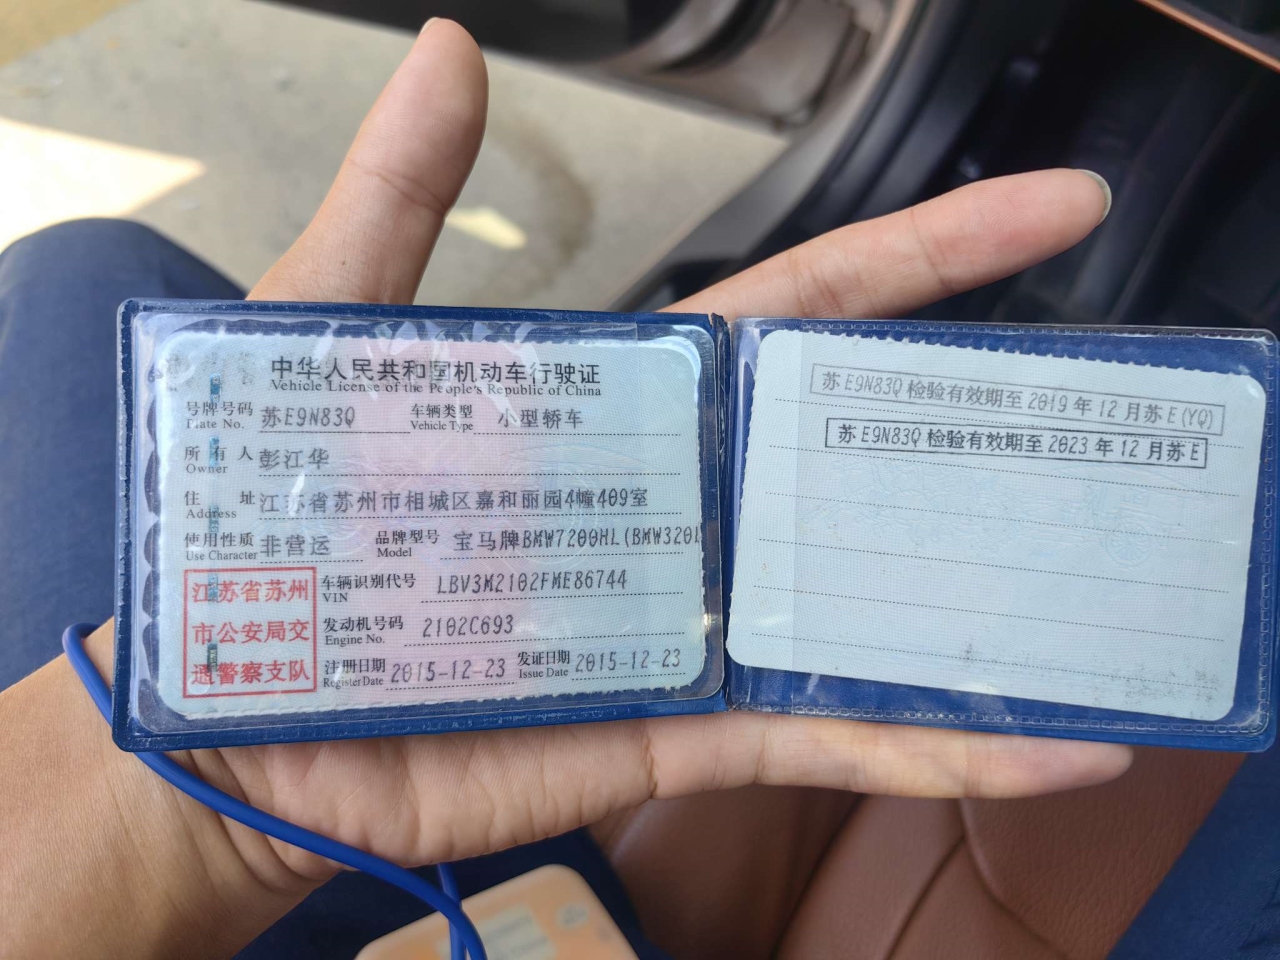 中华人民共和国机动车行驶证
Vehicle License of the People's Republic of China
号牌号码 苏E9N83Q 车辆类型 小型轿车
Plate No. Vehicle Type
所有人 彭江华
Owner
住址 江苏省苏州市相城区嘉和丽园4幢409室
Address
使用性质 非营运 品牌型号 宝马牌BMW7200HL(BMW320l
Use Character Model
江苏省苏州市公安局交通警察支队
车辆识别代号 LBV3M2102FME86744
VIN
发动机号码 2102C693
Engine No.
注册日期 2015-12-23 发证日期 2015-12-23
Register Date Issue Date
苏E9N83Q检验有效期至2019年12月苏E(YQ)
苏E9N83Q检验有效期至2023年12月苏E